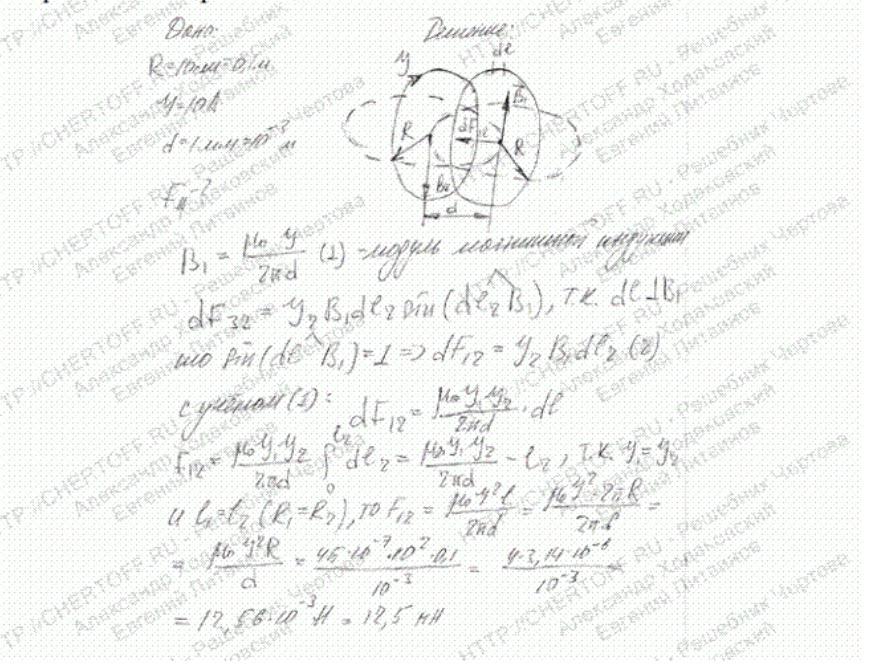 Дано: Решение:
R=10см=0,1м
У=10А
d=1мм=10⁻³ м
F₁₂-?
У dl B₁ R dF₁₂ R B₂ d
B₁ = μ₀ У / 2πd (1) -модуль магнитной индукции
dF₃₂ = У₂ B₁ dl₂ sin(dl₂ B₁), т.к. dl⊥B₁
то sin(dl B₁)=1 => dF₁₂ = У₂ B₁ dl₂ (2)
с учётом (1): dF₁₂ = μ₀ У₁ У₂ / 2πd · dl
F₁₂ = μ₀ У₁ У₂ / 2πd ∫₀^l₂ dl₂ = μ₀ У₁ У₂ / 2πd - l₂, т.к. У₁=У₂
и l₁=l₂ (R₁=R₂), то F₁₂ = μ₀ У² l / 2πd = μ₀ У² · 2πR / 2π·d =
= μ₀ У² R / d = 4π·10⁻⁷·10²·0,1 / 10⁻³ = 4·3,14·10⁻⁶ / 10⁻³ =
= 12,56·10⁻³ Н = 12,5 мН
HTTP://CHERTOFF.RU - Решебник Чертова
Александр Ходаковский
Евгений Питаинов